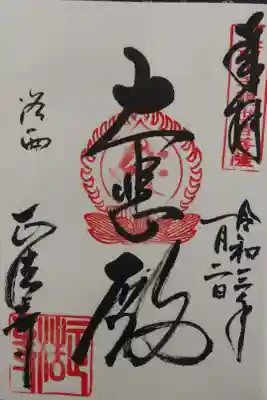 奉拝
令和三年
一月二日
大悲殿
洛西
正法寺